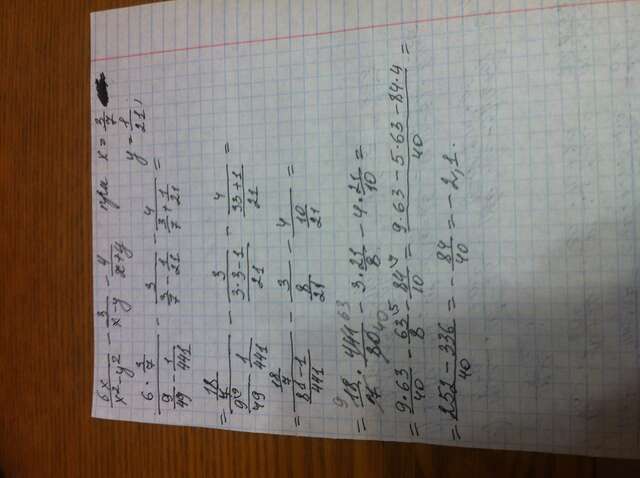 6x/(x²-y²) - 3/(x-y) - 4/(x+y) при x = 3/7
y = 1/21,
(6·3/7)/(9/49 - 1/441) - 3/(3/7 - 1/21) - 4/(3/7 + 1/21) =
= (18/7)/(9⁹/49 - 1/441) - 3/((3·3-1)/21) - 4/((33+1)/21) =
= (18/7)/((81-1)/441) - 3/(8/21) - 4/(10/21) =
= 18⁹/7 · 441⁶³/80₄₀ - 3·21/8 - 4·21/10 =
= 9·63/40 - 63⁵/8 - 84⁴/10 = (9·63 - 5·63 - 84·4)/40 =
= (252 - 336)/40 = -84/40 = -2,1.